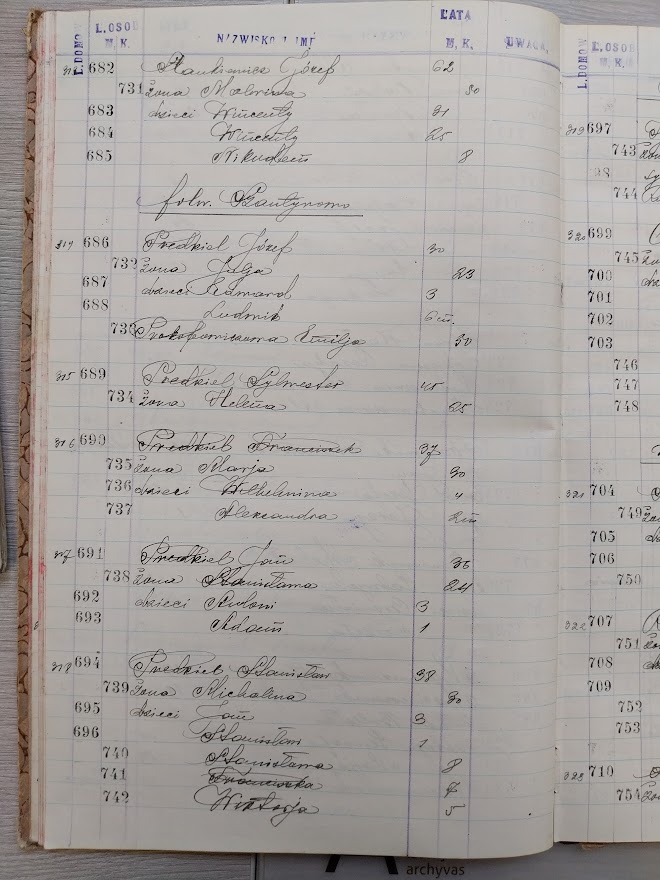 L. DOMOW L. OSOB M. K. NAZWISKO I IMĘ LATA M. K. UWAGA,
682 Stankiewicz Józef 62
731 żona Malwina 50
683 dzieci Wincenty 31
684 25
685 Nikodem 8
folw.
314 686 Predkiel Józef 30
732 żona Julja 23
687 dzieci Edmard 3
688 Ludwik 6 m.
733 Emilja 50
315 689 Predkiel Sylwester 45
734 żona Helena 25
316 690 Predkiel Franciszek 37
735 żona Marja 30
736 dzieci Wilhelmina 4
737 Aleksandra 2 m
317 691 Predkiel Jan 36
738 żona Stanisława 24
692 dzieci Antoni 3
693 Adam 1
318 694 Predkiel Stanisław 38
739 żona Michalina 30
695 dzieci Jan 3
696 Stanisław 1
740 Stanisława 8
741 Franciszka
742 Wiktorja 5
L. DOMOW L. OSOB M. K.
319 697
743
98
744
320 699
745
700
701
702
703
746
747
748
321 704
749
705
706
750
322 707
751
708
709
752
753
323 710
754
archyvas